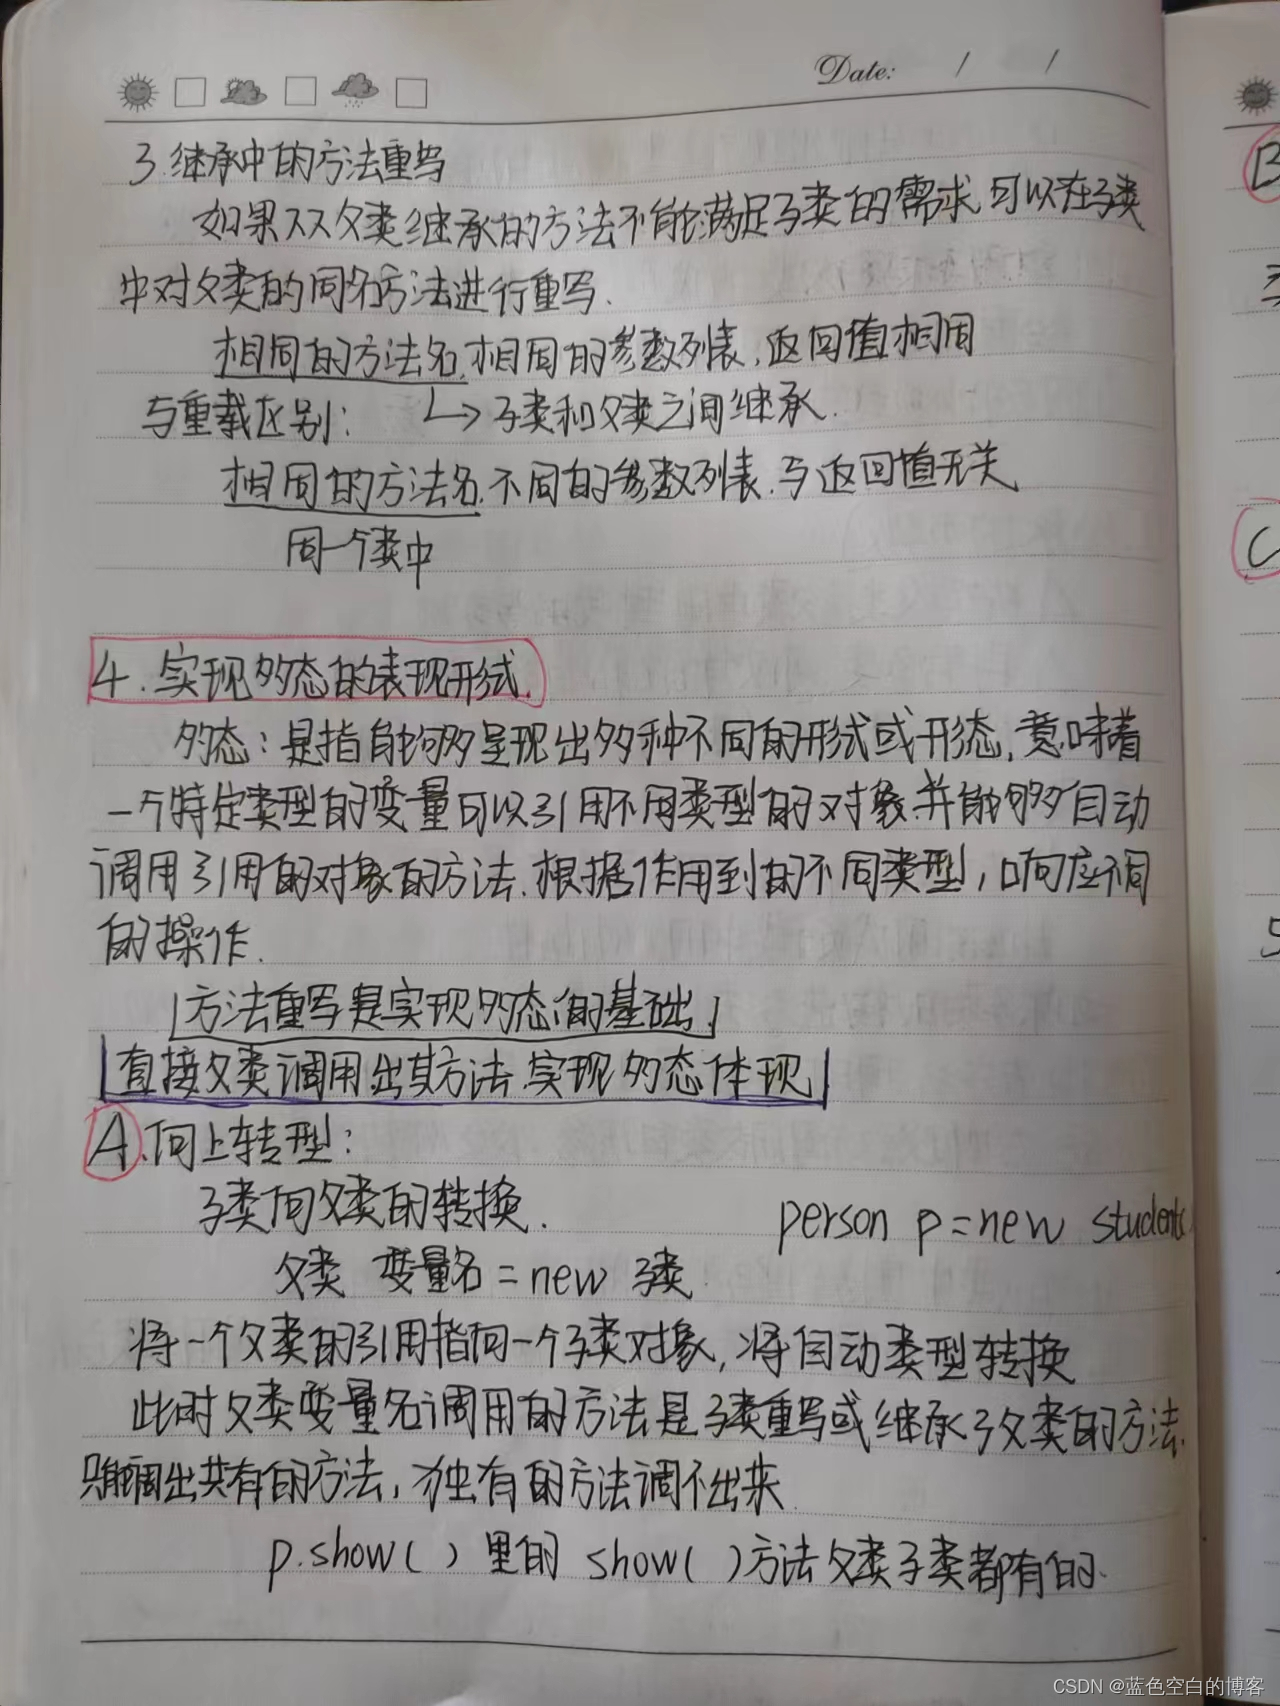 Date: / /
3.继承中的方法重写
如果从父类继承的方法不能满足子类的需求,可以在子类
中对父类的同名方法进行重写.
相同的方法名,相同的参数列表,返回值相同
与重载区别: 子类和父类之间继承.
相同的方法名,不同的参数列表,与返回值无关
同一个类中
4.实现多态的表现形式.
多态:是指能够多呈现出多种不同的形式或形态,意味着
一个特定类型的变量可以引用不同类型的对象,并能够自动
调用引用的对象的方法.根据作用到的不同类型,响应不同
的操作.
方法重写是实现多态的基础
直接父类调用出其方法.实现多态体现
A.向上转型:
子类向父类的转换.
person p=new student(
父类 变量名=new 子类.
将一个父类的引用指向一个子类对象,将自动类型转换
此时父类变量名调用的方法是子类重写或继承了父类的方法.
只能调出共有的方法,独有的方法调不出来.
p.show( ) 里的 show( )方法父类子类都有的.
B
C
5
CSDN @蓝色空白的博客